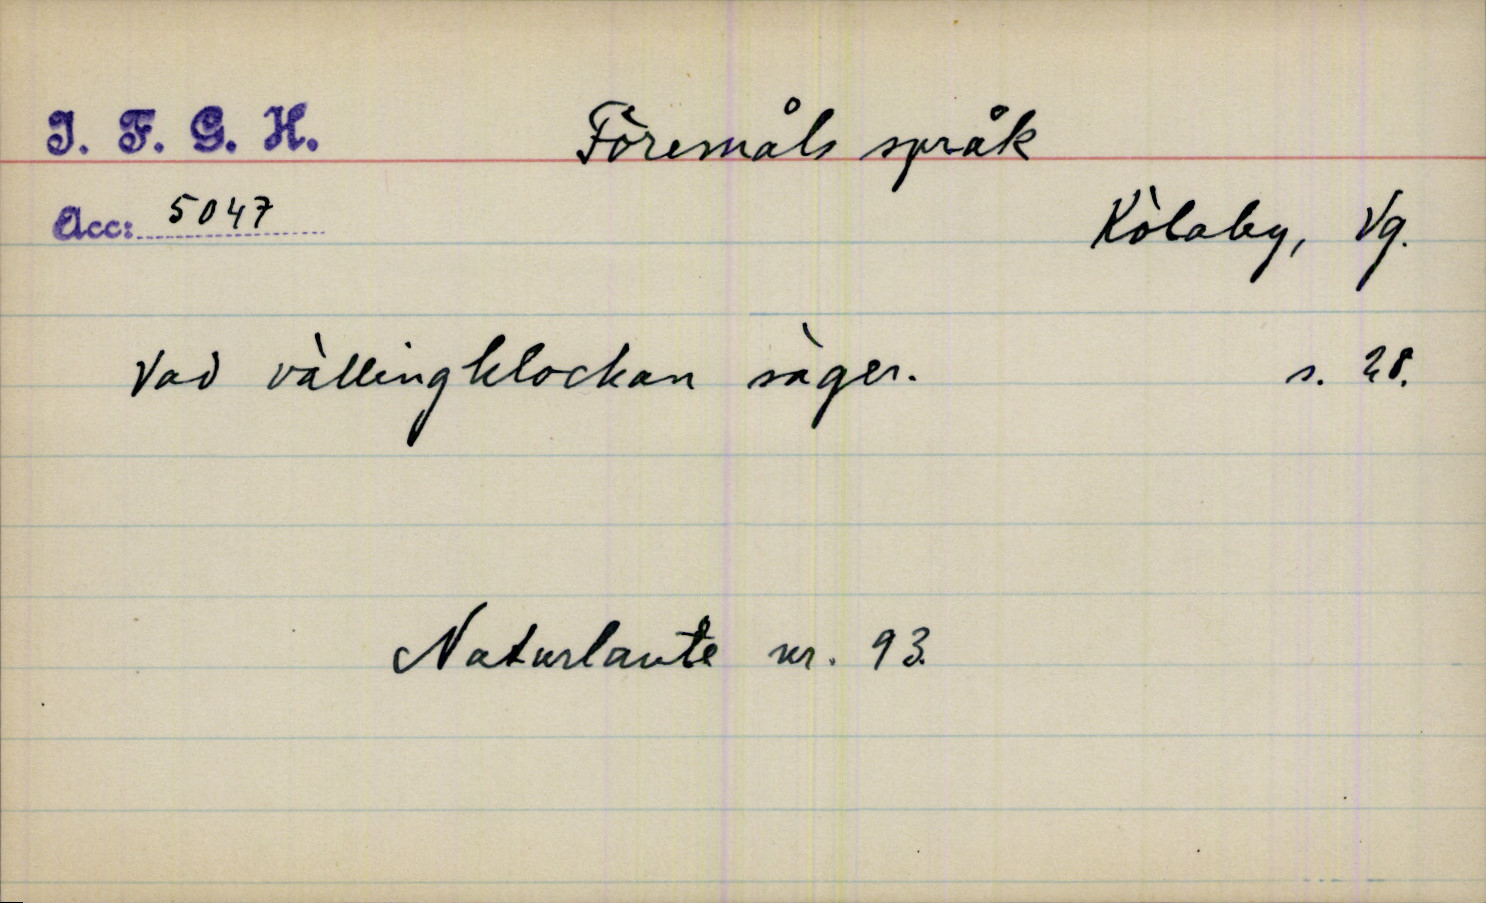 I. F. G. H.
Föremåls språk
Acc: 5047
Kölaby, Vg.
Vad vällingklockan säger. s. 28.
Naturlaute nr. 93.